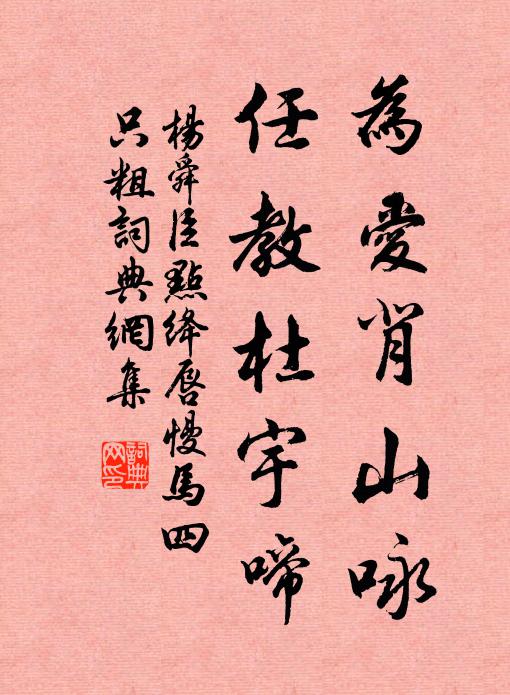 為愛肖山咏
任教杜宇啼
楊舜臣點绛唇慢馬四
只粗詞典網集
詞典網印